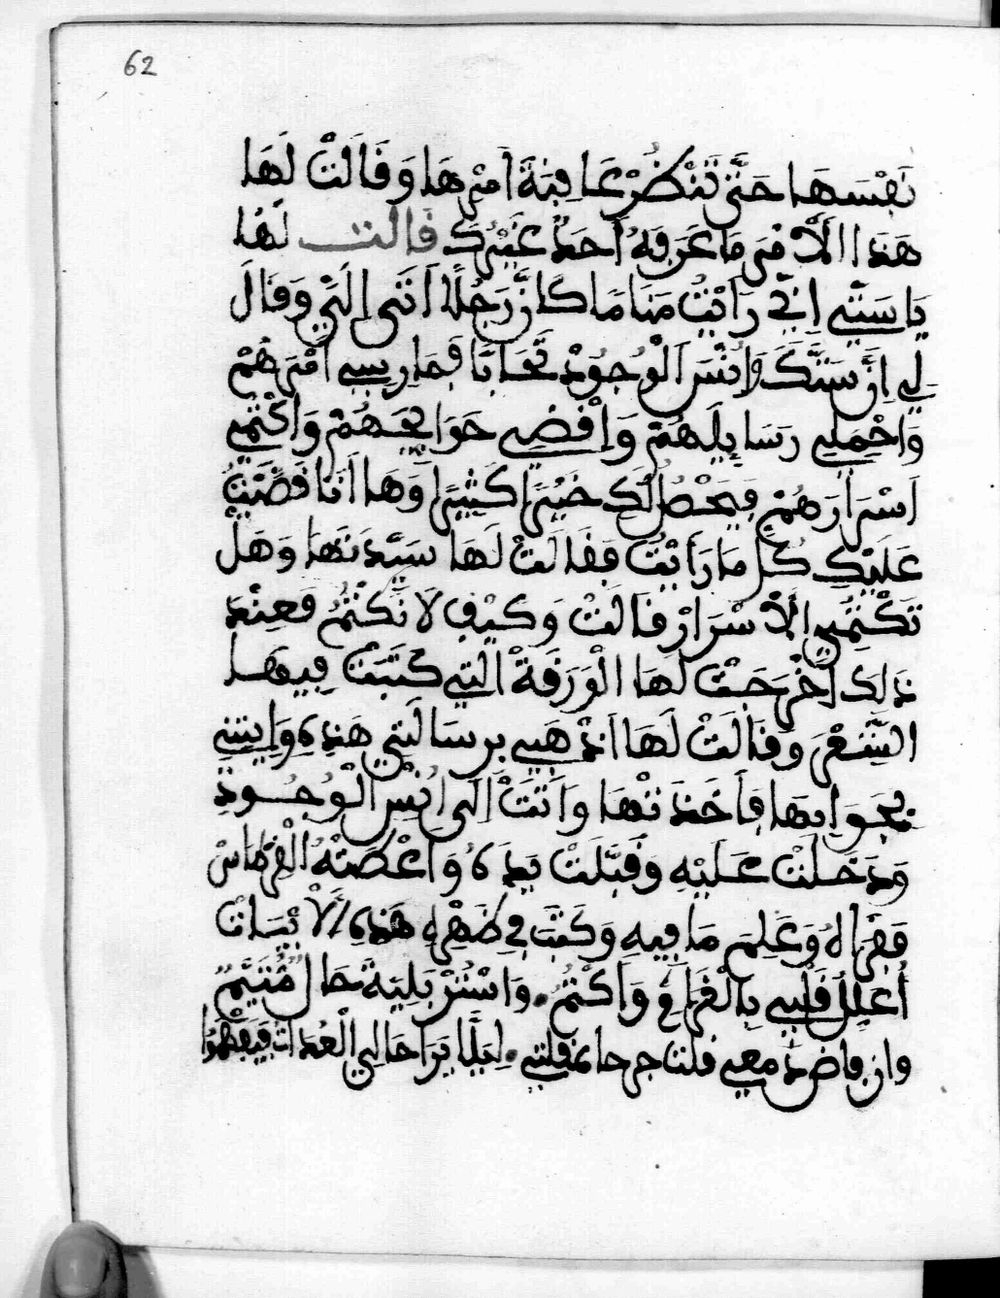 62
نَفْسَهَا حَتَّى تَنْظُرْ عَافِبَةَ اَمْرِهَا وَقَالَتْ لَهَا
هَذَا الْاَمْرَ مَا عَرَفِهُ اَحَدٌ غَيْرَكِ فالت لَهَا
يَا سَتِّي اِنِّي رَاَيْتُ مَنَامًا كَانَّ رَجُلًا اَتَى اِلَيَّ وَقَالَ
لِي اِنَّ سَتَّكَ وَانْسَ الْوُجُودْ تَحَابَّا فَمَارِسِي اَمْرَهُمْ
وَاحْمِلِي رَسَايِلَهُمْ وَاقْضِي حَوَايِجَهُمْ وَاكْتُمِي
اَسْرَارَهُمْ فَيَحْصُلُ لَكِ خَيْرًا كَثِيرًا وَهَا اَنَا قَصَّيْتُ
عَلَيْكِ كُلَّ مَا رَاَيْتُ فَقَالَتْ لَهَا سَيِّدَتهَا وَهَلْ
تَكْتُمِي الْاَسْرَارْ فَالَتْ وَكَيْفِ لَا نَكْتُمُ فَعِنْدَ
ذَلِكَ اَخْرَجَتْ لَهَا الْوَرَقَةْ الَّتِي كَتَبَتْ فِيهَا
الشِّعْرَ وَقَالَتْ لَهَا اذْهَبِي بِرِسَالَتِي هَذِهِ وَايتِنِي
بِجَوَابِهَا فَاَخَذَتْهَا وَاَتَتْ اِلَى اُنْسِ الْوُجُودِ
وَدَخَلَتْ عَلَيْهِ وَقَبَّلَتْ يَدَهُ وَاَعْطَتْهُ الْقِرْطَاسْ
فَقَرَاهُ وَعَلِمَ مَا فِيهِ وَكَتَبَ فِي ظَهْرِهِ هَذِهِ الْاَبْيَاتْ
اُعَلِّلُ قَلْبِي بِالْغَرَامِ وَاَكْتُمُ. وَاَسْتُرْ بَلِيَّةَ حَالُ مُتَيَّمٌ
وان فاض دمعي فلت جرحا بمفلتي. لِيَلَّا يَرَا حَالِي الْعُدَاتْ فَيَفْهَمُوا